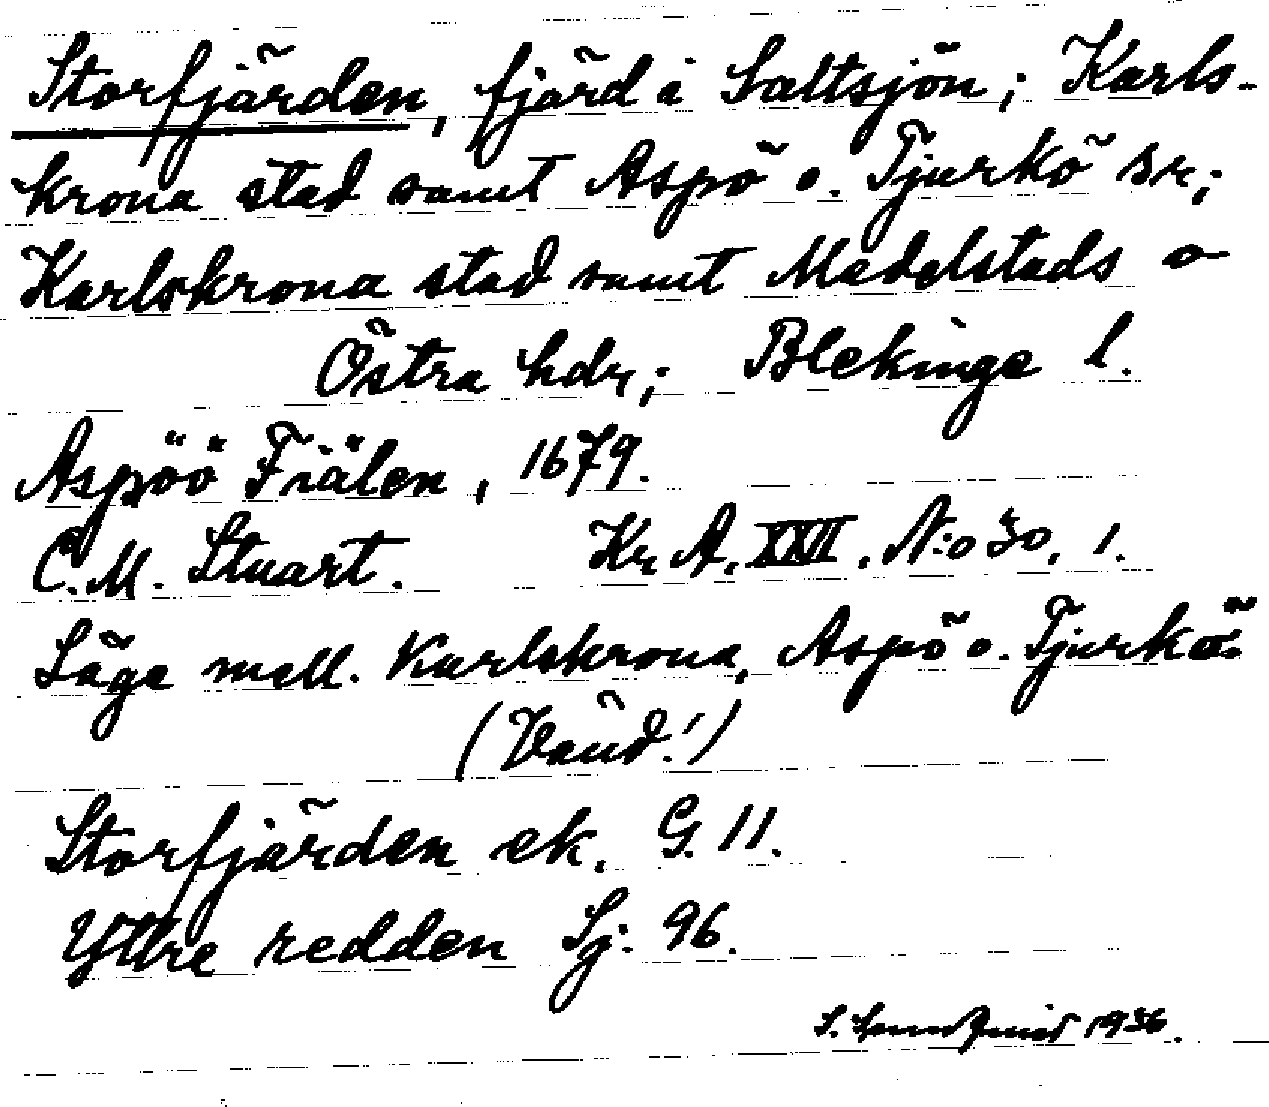 Storfjärden, fjärd i Saltsjön; Karls-
krona stad samt Aspö o. Tjurkö snr;
Karlskrona stad samt Medelstads o
Östra hdr; Blekinge l.
Aspöö Fiälen, 1679.
C. M. Stuart. Kr A. XXII. N:o 30, 1.
Läge mell. Karlskrona, Aspö o. Tjurkö.
(Vänd!)
Storfjärden ek. G. 11.
Yttre redden Sj: 96.
S. 1936.